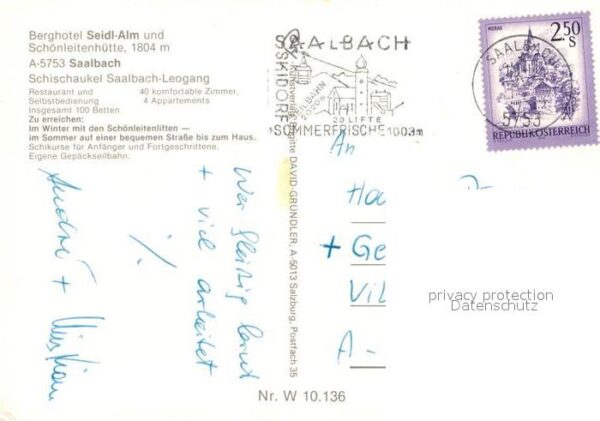 Berghotel Seidl-Alm und
Schönleitenhütte, 1804 m
A-5753 Saalbach
Schischaukel Saalbach-Leogang
Restaurant und 40 komfortable Zimmer,
Selbstbedienung 4 Appartements
Insgesamt 100 Betten
Zu erreichen:
Im Winter mit den Schönleitenliften —
im Sommer auf einer bequemen Straße bis zum Haus.
Schikurse für Anfänger und Fortgeschrittene.
Eigene Gepäckseilbahn.
Wer fleißig lernt
+ viel arbeitet
%
André +
DAVID-GRÜNDLER, A-5013 Salzburg, Postfach 35
SAALBACH
SKIDORF
20 LIFTE
SOMMERFRISCHE 1003m
MURAU
2.50 S
REPUBLIK ÖSTERREICH
SAALBACH
5753
An
+ Ge
Vil
A -
privacy protection
Datenschutz
Nr. W 10.136